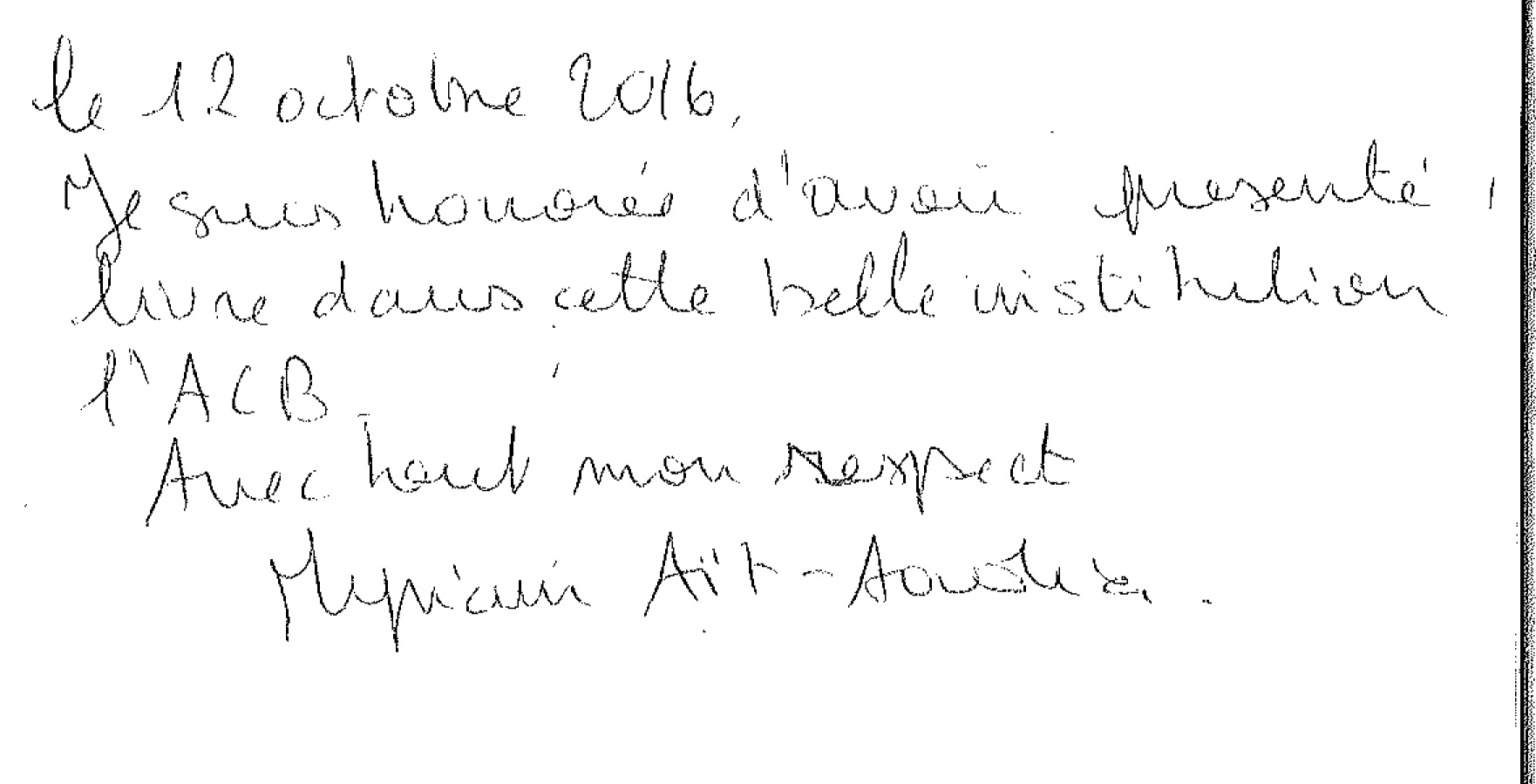 le 12 octobre 2016,
Je suis honorée d'avoir présenté
livre dans cette belle institution
l'ACB.
Avec tout mon respect
Myriam Aït-Aoudia.